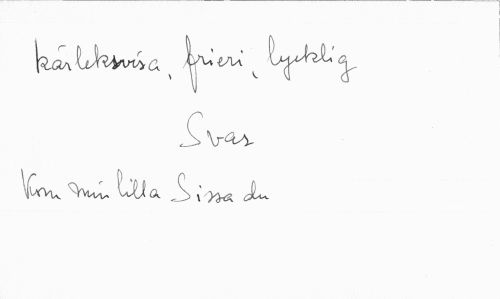 kärleksvisa, frieri, lycklig
Svar
Kom min lilla Sissa du